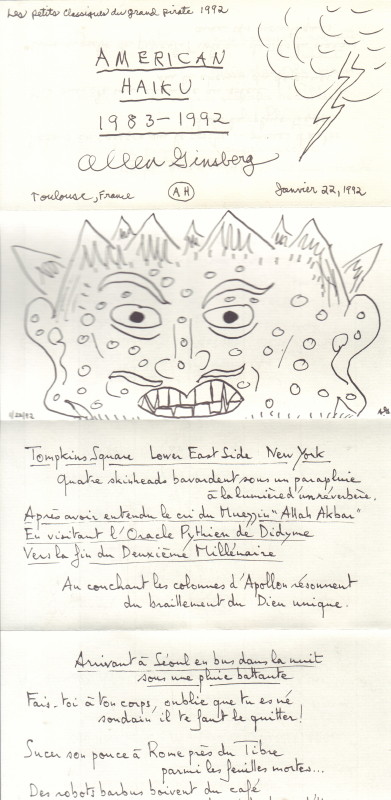 Les petits Classiques du grand pirate 1992
AMERICAN
HAIKU
1983-1992
Allen Ginsberg
Toulouse, France
AH
Janvier 22, 1992
1/22/92
Tompkins Square Lower East Side New York
Quatre skinheads bavardent sous un parapluie
à la lumière d'un réverbère.
Après avoir entendu le cri du Muezzin "Allah Akbar"
En visitant l'Oracle Pythien de Didyme
Vers la fin du Deuxième Millénaire
Au couchant les colonnes d'Apollon résonnent
du braillement du Dieu unique.
Arrivant à Séoul en bus dans la nuit
sous une pluie battante
Fais-toi à ton corps, oublie que tu es né
soudain il te faut le quitter!
Sucer son pouce à Rome près du Tibre
parmi les feuilles mortes...
Des robots barbus boivent du café